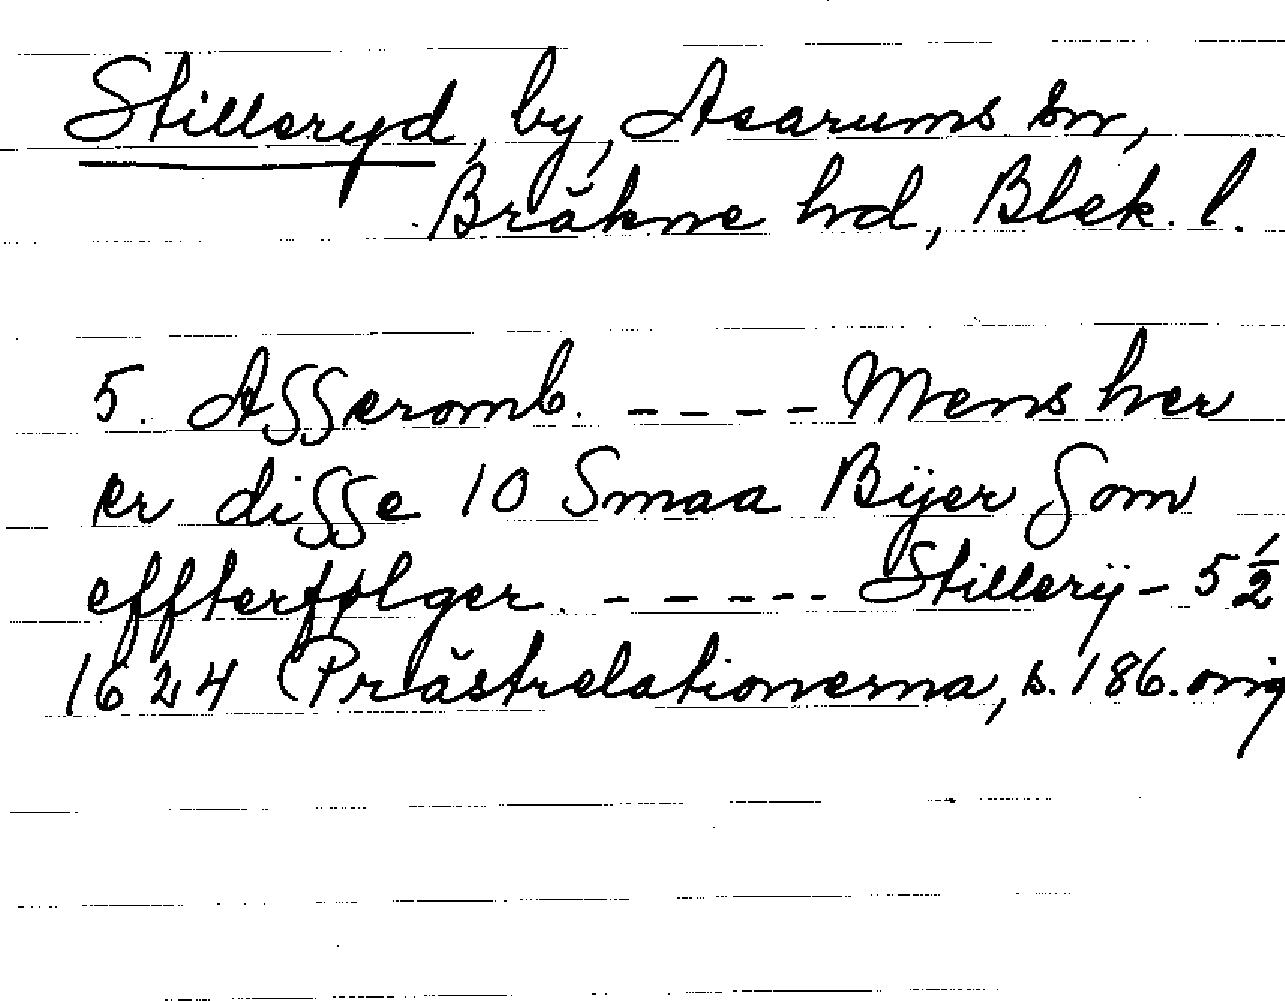 Stilleryd, by, Asarums sn,
Bräkne hd, Blek. l.
5. Asseromb. ---- Mens her
er disse 10 Smaa Bÿer Som
effterfølger. ----- Stillerÿ - 5 1/2
1624 (Prästrelationerna, s. 186. orig